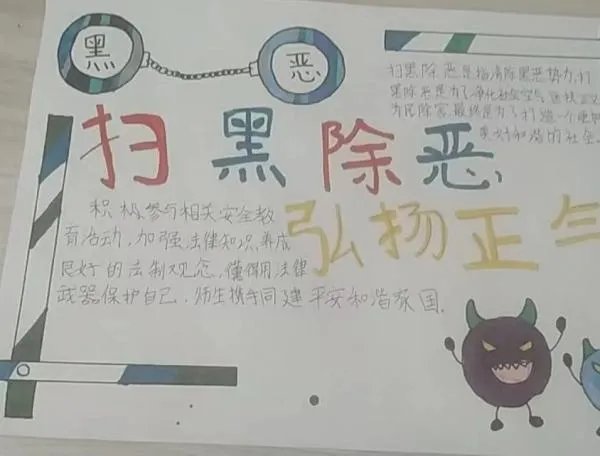 黑
恶
扫黑除恶是指清除黑恶势力,打
黑除恶是为了净化社会空气
为民除害,最终是为了打造一个更加
美好和谐的社会.
扫黑除恶,
弘扬正气
积极参与相关安全教
育活动,加强法律知识,养成
良好的法制观念,懂得用法律
武器保护自己,师生携手同建平安和谐家国.